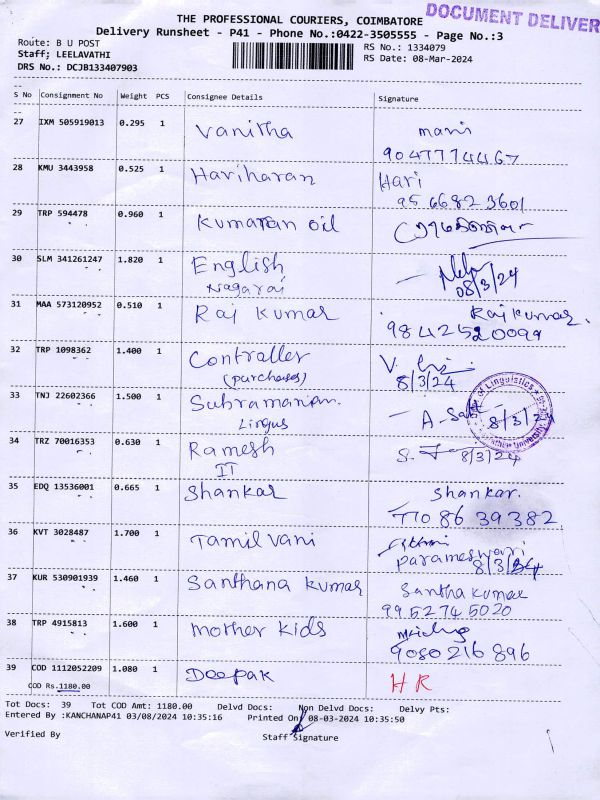 THE PROFESSIONAL COURIERS, COIMBATORE
DOCUMENT DELIVER
Delivery Runsheet - P41 - Phone No.:0422-3505555 - Page No.:3
Route: B U POST
RS No.: 1334079
Staff; LEELAVATHI
RS Date: 08-Mar-2024
DRS No.: DCJB133407903
S No Consignment No Weight PCS Consignee Details Signature
27 IXM 505919013 0.295 1 Vanitha mani
9047774467
28 KMU 3443958 0.525 1 Hariharan Hari
9566823601
29 TRP 594478 0.960 1 Kumaran oil
30 SLM 341261247 1.820 1 English
Nagaraj 08/3/24
31 MAA 573120952 0.510 1 Raj Kumar Rajkumar.
9842520099
32 TRP 1098362 1.400 1 Controller
(purchases) 8/3/24
33 TNJ 22602366 1.500 1 Subramaniam.
Lingus 8/3/24
of Linguistics
University
34 TRZ 70016353 0.630 1 Ramesh
IT 8/3/24
35 EDQ 13536001 0.665 1 Shankar Shankar.
7708639382
36 KVT 3028487 1.700 1 Tamil vani
Parameswari
8/3/24
37 KUR 530901939 1.460 1 Santhana kumar Santha kumar
9952745020
38 TRP 4915813 1.600 1 mother kids
9080216896
39 COD 1112052209 1.080 1 Deepak HR
COD Rs.1180.00
Tot Docs: 39 Tot COD Amt: 1180.00 Delvd Docs: Non Delvd Docs: Delvy Pts:
Entered By :KANCHANAP41 03/08/2024 10:35:16 Printed On: 08-03-2024 10:35:50
Verified By Staff Signature